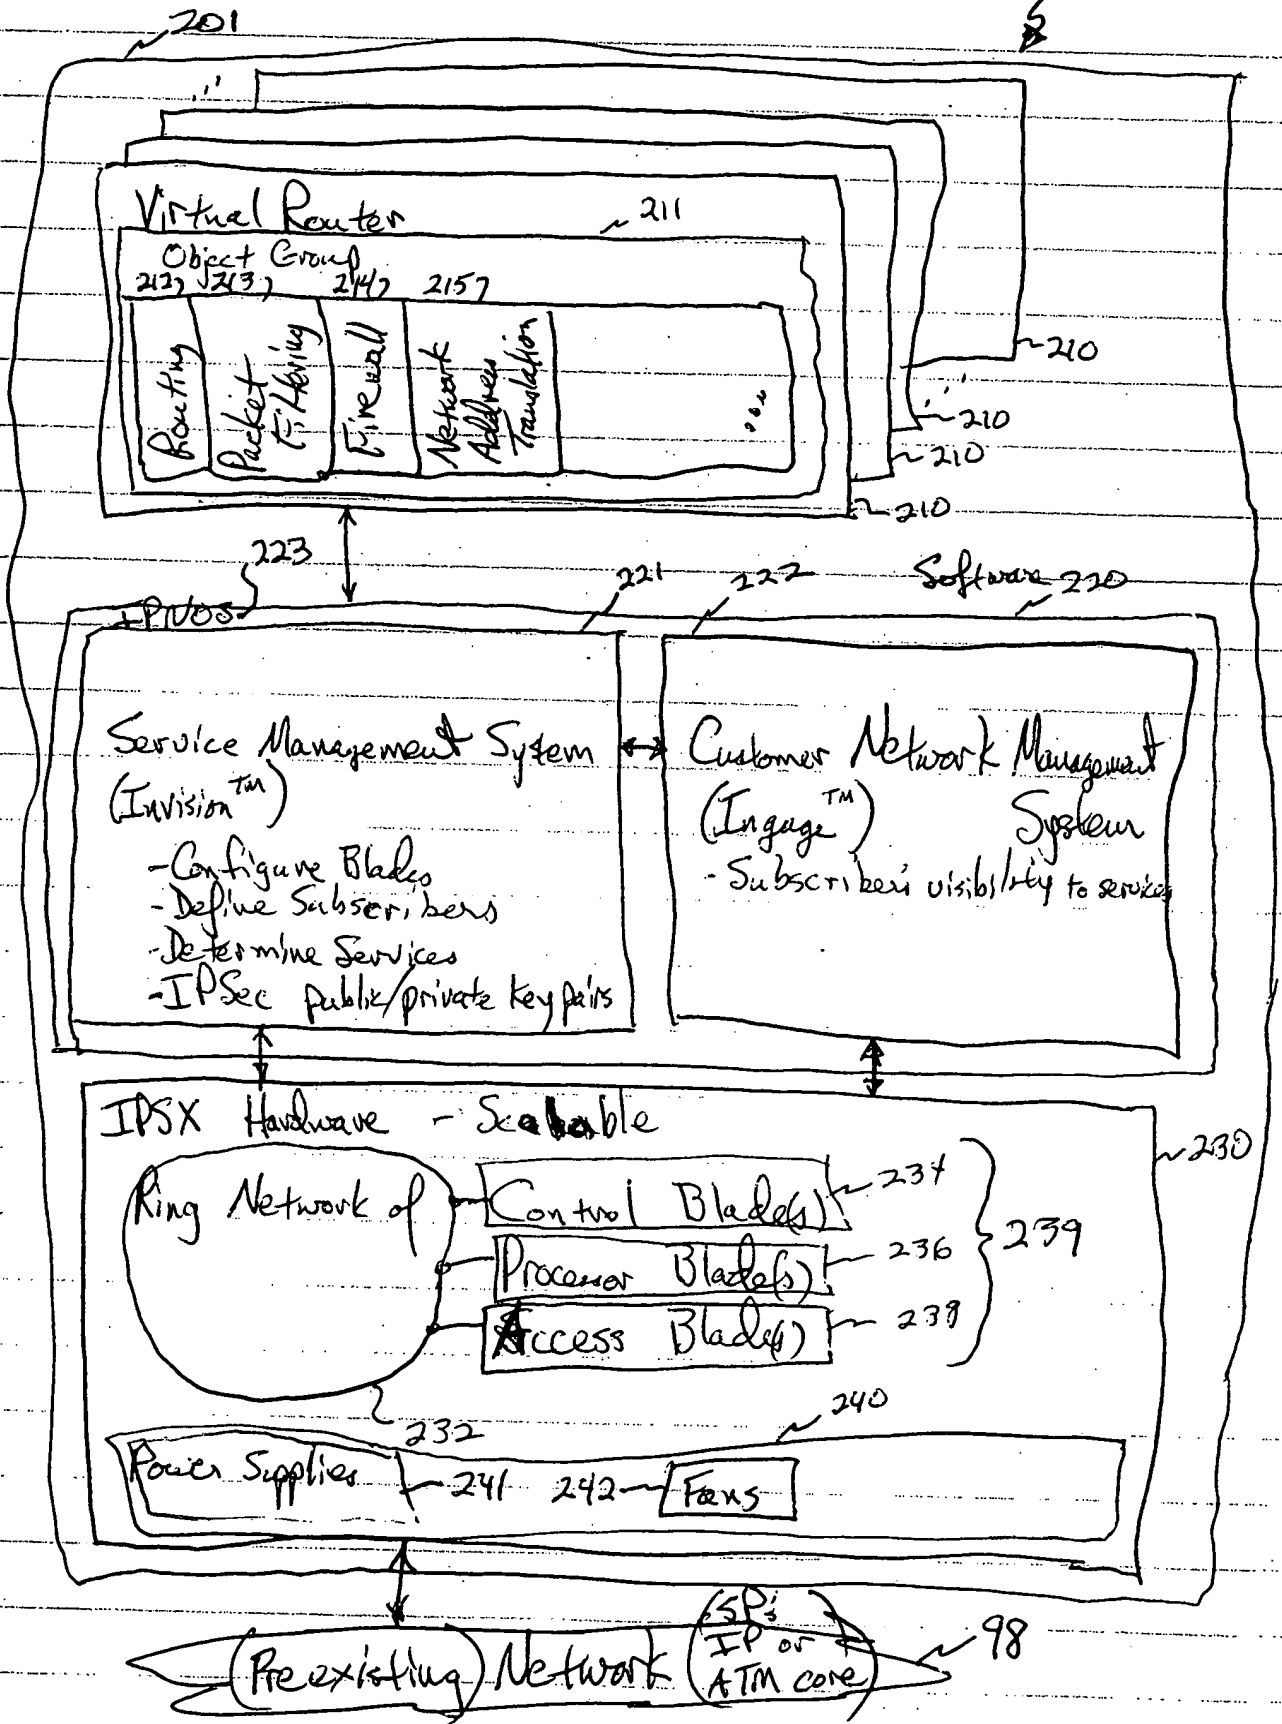 201
Virtual Router
211
Object Group
212 213 214 215
Routing
Packet
Filtering
Firewall
Network
Address
Translation
...
210
210
210
210
223
221
222
Software 220
IPNOS
Service Management System
(Invision™)
-Configure Blades
-Define Subscribers
-Determine Services
-IPSec public/private key pairs
Customer Network Management
(Ingage™) System
- Subscriber's visibility to services
IPSX Hardware - Scalable
230
Ring Network of
Control Blade(s)
234
Processor Blade(s)
236
Access Blade(s)
238
239
232
240
Power Supplies
241
242
Fans
(Preexisting) Network
(SP's
IP or
ATM core)
98